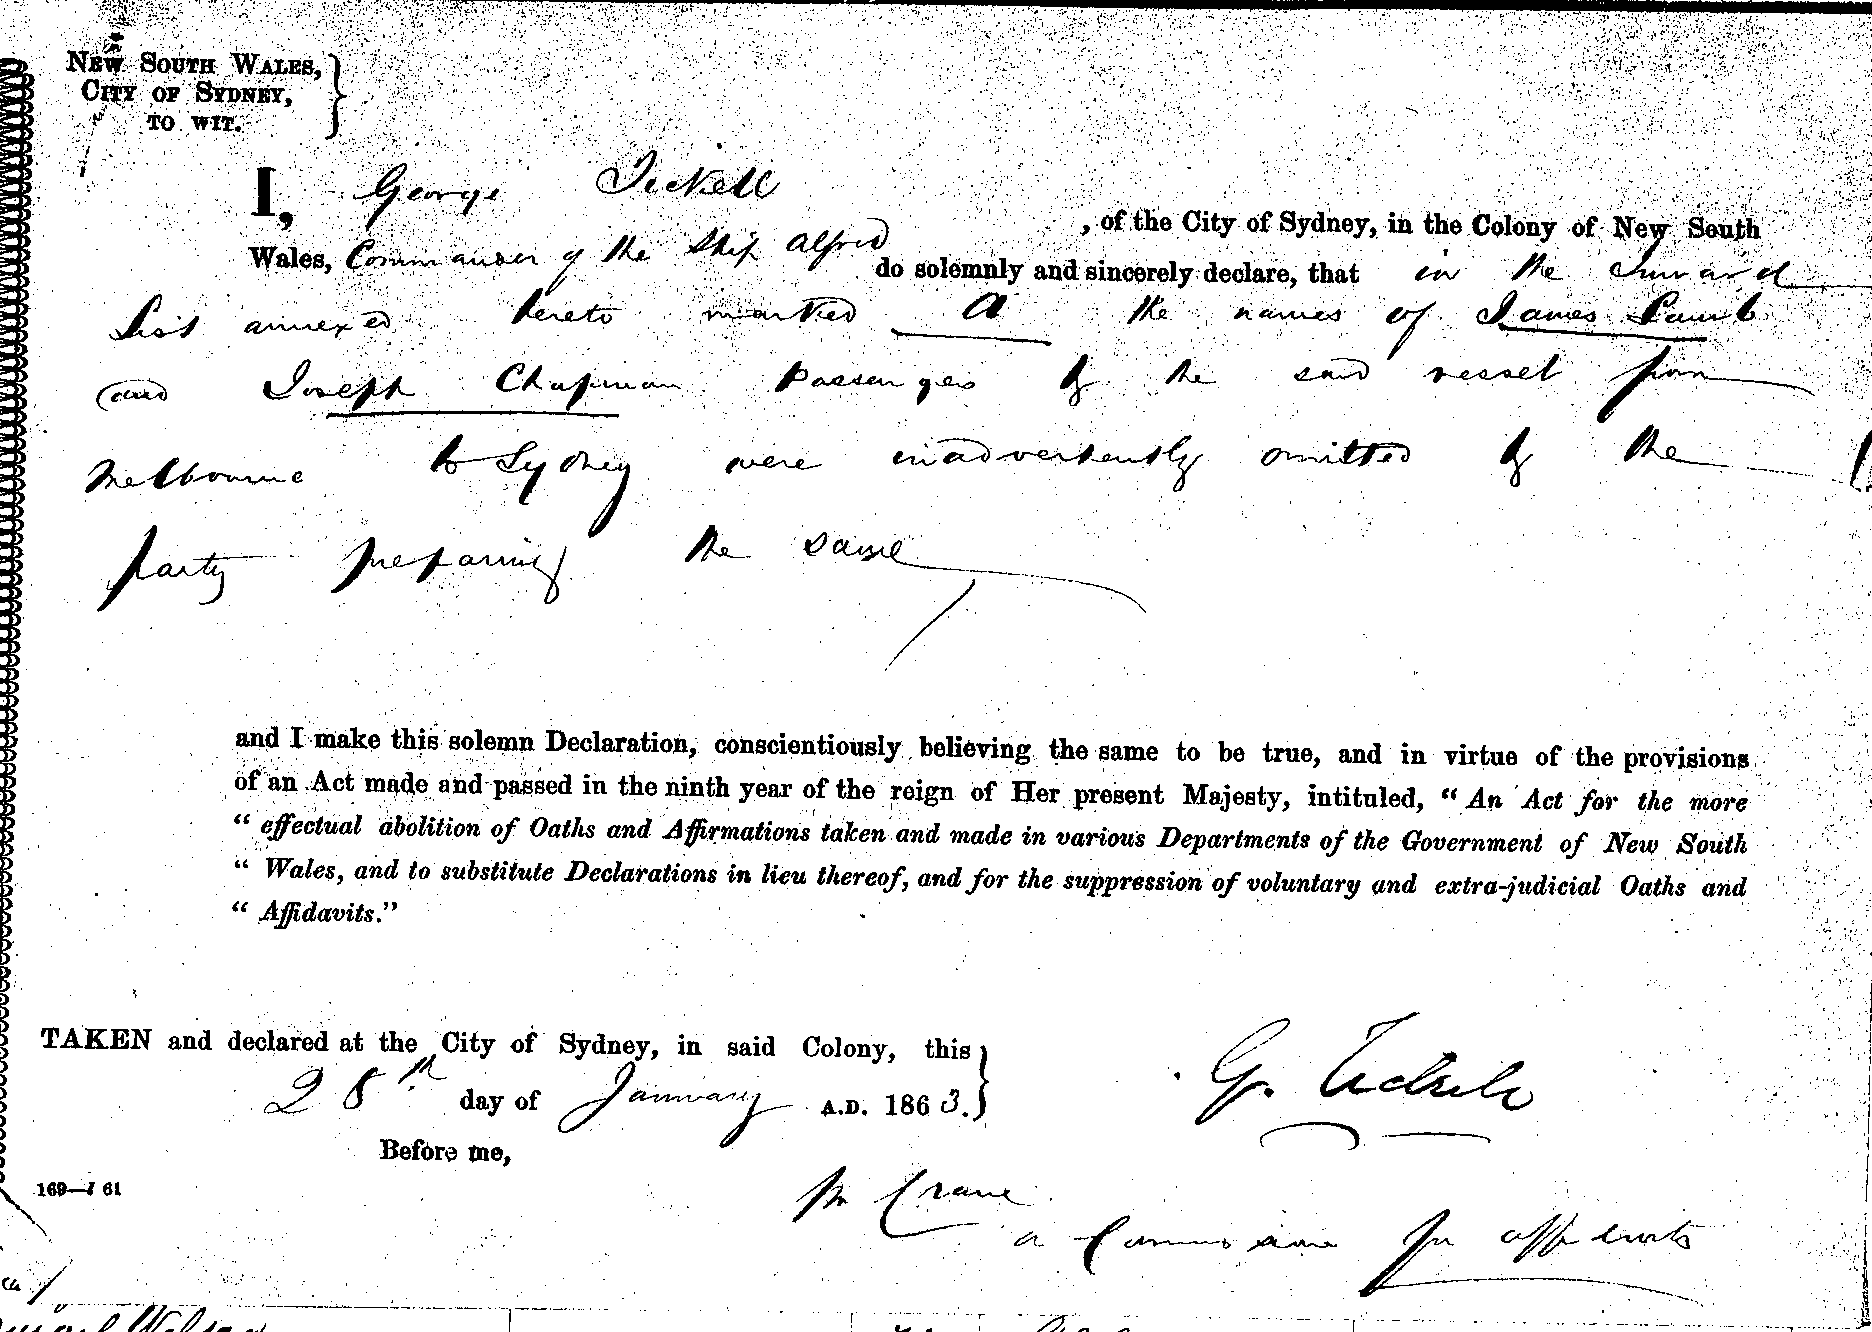 NEW SOUTH WALES,
CITY OF SYDNEY,
TO WIT.
I, George Tickell
, of the City of Sydney, in the Colony of New South
Wales, Commander of the Ship Alfred do solemnly and sincerely declare, that in the Inward
List annexed hereto marked A the names of James Lamb
and Joseph Chapman Passengers by the said vessel from
Melbourne to Sydney were inadvertently omitted by the
party preparing the same
and I make this solemn Declaration, conscientiously believing the same to be true, and in virtue of the provisions
of an Act made and passed in the ninth year of the reign of Her present Majesty, intituled, "An Act for the more
"effectual abolition of Oaths and Affirmations taken and made in various Departments of the Government of New South
"Wales, and to substitute Declarations in lieu thereof, and for the suppression of voluntary and extra-judicial Oaths and
"Affidavits."
TAKEN and declared at the City of Sydney, in said Colony, this
28th day of January A.D. 1863.
G. Tickell
Before me,
169—/ 61
Crane
a Commissioner for affidavits